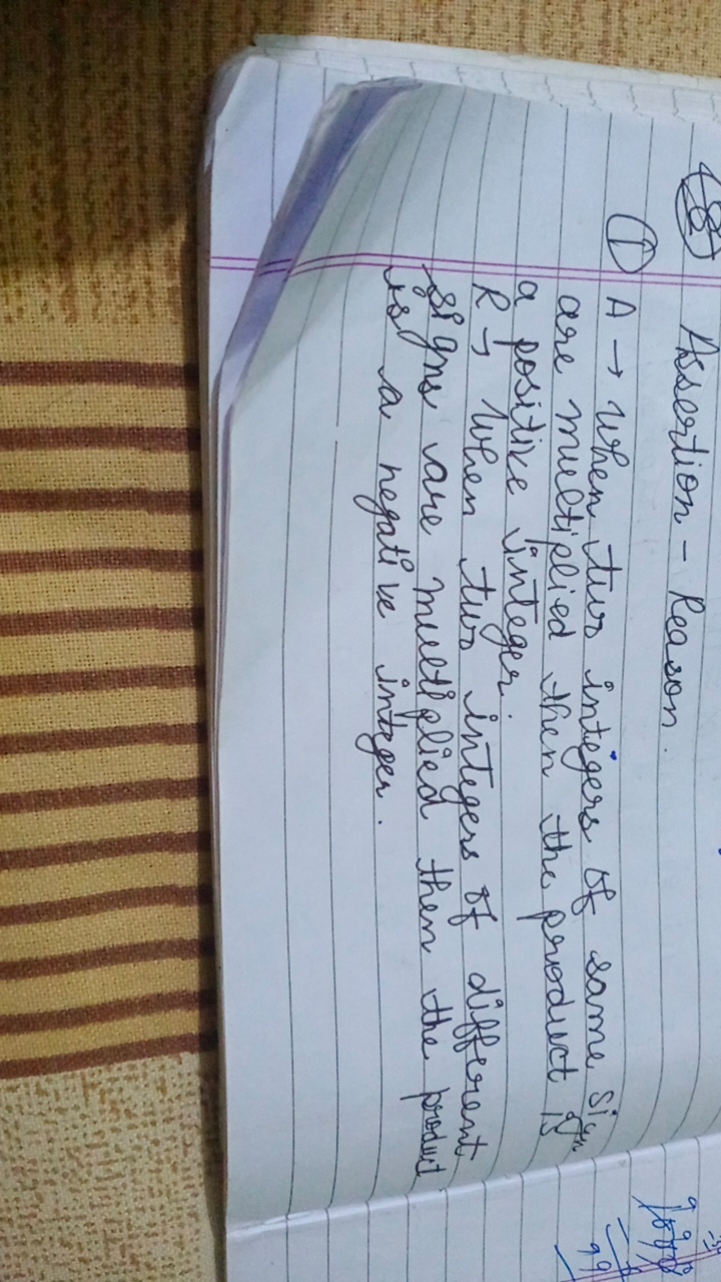 Assertion - Reason.
① A → When two integers of same sign
are multiplied then the product is
a positive integer.
R → When two integers of different
signs are multiplied then the product
is a negative integer.